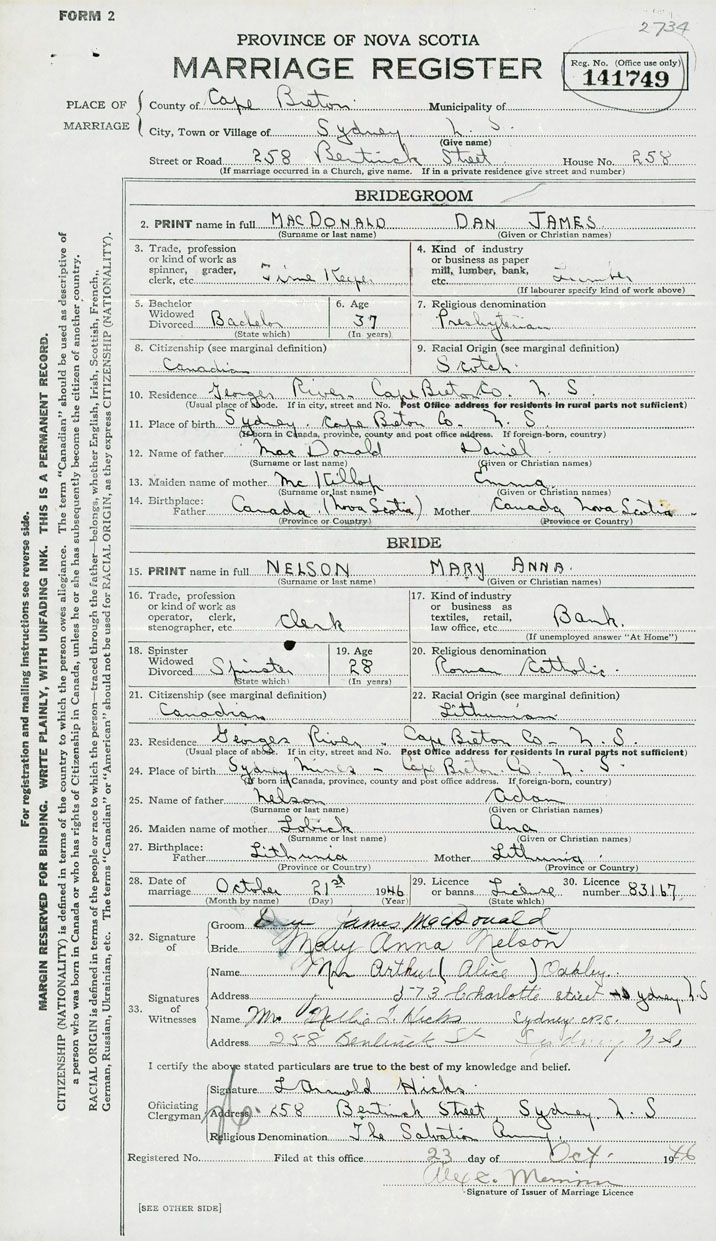 FORM 2
2734
PROVINCE OF NOVA SCOTIA
MARRIAGE REGISTER
Reg. No. (Office use only)
141749
PLACE OF MARRIAGE
County of Cape Breton. Municipality of
City, Town or Village of Sydney N. S.
(Give name)
Street or Road 258 Bentinck Street. House No. 258
(If marriage occurred in a Church, give name. If in a private residence give street and number)
BRIDEGROOM
2. PRINT name in full MACDONALD DAN JAMES.
(Surname or last name) (Given or Christian names)
3. Trade, profession or kind of work as spinner, grader, clerk, etc. Time Keeper
4. Kind of industry or business as paper mill, lumber, bank, etc. Lumber
(If labourer specify kind of work above)
5. Bachelor Widowed Divorced Bachelor (State which)
6. Age 37 (In years)
7. Religious denomination Presbyterian
8. Citizenship (see marginal definition) Canadian
9. Racial Origin (see marginal definition) Scotch.
10. Residence Georges River. Cape Breton Co. N. S.
(Usual place of abode. If in city, street and No. Post Office address for residents in rural parts not sufficient)
11. Place of birth Sydney. Cape Breton Co. N. S.
(If born in Canada, province, county and post office address. If foreign-born, country)
12. Name of father Mac Donald Daniel.
(Surname or last name) (Given or Christian names)
13. Maiden name of mother Mc Killop Emma.
(Surname or last name) (Given or Christian names)
14. Birthplace: Father Canada. (Nova Scotia) Mother Canada Nova Scotia
(Province or Country) (Province or Country)
BRIDE
15. PRINT name in full NELSON MARY ANNA.
(Surname or last name) (Given or Christian names)
16. Trade, profession or kind of work as operator, clerk, stenographer, etc. Clerk
17. Kind of industry or business as textiles, retail, law office, etc. Bank.
(If unemployed answer "At Home")
18. Spinster Widowed Divorced Spinster (State which)
19. Age 28 (In years)
20. Religious denomination Roman Catholic.
21. Citizenship (see marginal definition) Canadian
22. Racial Origin (see marginal definition) Lithunian
23. Residence Georges River - Cape Breton Co - N. S.
(Usual place of abode. If in city, street and No. Post Office address for residents in rural parts not sufficient)
24. Place of birth Sydney Mines - Cape Breton Co. N. S.
(If born in Canada, province, county and post office address. If foreign-born, country)
25. Name of father Nelson Adam
(Surname or last name) (Given or Christian names)
26. Maiden name of mother Lobick Ana
(Surname or last name) (Given or Christian names)
27. Birthplace: Father Lithunia Mother Lithunia.
(Province or Country) (Province or Country)
28. Date of marriage October 21st 1946
(Month by name) (Day) (Year)
29. Licence or banns License (State which)
30. Licence number 83167
32. Signature of
Groom James MacDonald
Bride Mary Anna Nelson
33. Signatures of Witnesses
Name Mrs Arthur (Alice) Oakley.
Address 573 Charlotte street Sydney N.S
Name Mrs. Nellie I. Hicks Sydney N.S.
Address 258 Bentinck St Sydney N.S.
I certify the above stated particulars are true to the best of my knowledge and belief.
Officiating Clergyman
Signature L Arnold Hicks.
Address 258 Bentinck Street, Sydney, N. S
Religious Denomination The Salvation Army.
Registered No. Filed at this office 23 day of Oct. 1946
Alex C.
Signature of Issuer of Marriage Licence
[SEE OTHER SIDE]
For registration and mailing instructions see reverse side.
MARGIN RESERVED FOR BINDING. WRITE PLAINLY, WITH UNFADING INK. THIS IS A PERMANENT RECORD.
CITIZENSHIP (NATIONALITY) is defined in terms of the country to which the person owes allegiance. The term "Canadian" should be used as descriptive of
a person who was born in Canada or who has rights of Citizenship in Canada, unless he or she has subsequently become the citizen of another country.
RACIAL ORIGIN is defined in terms of the people or race to which the person—traced through the father—belongs, whether English, Irish, Scottish, French,
German, Russian, Ukrainian, etc. The terms "Canadian" or "American" should not be used for RACIAL ORIGIN, as they express CITIZENSHIP (NATIONALITY).